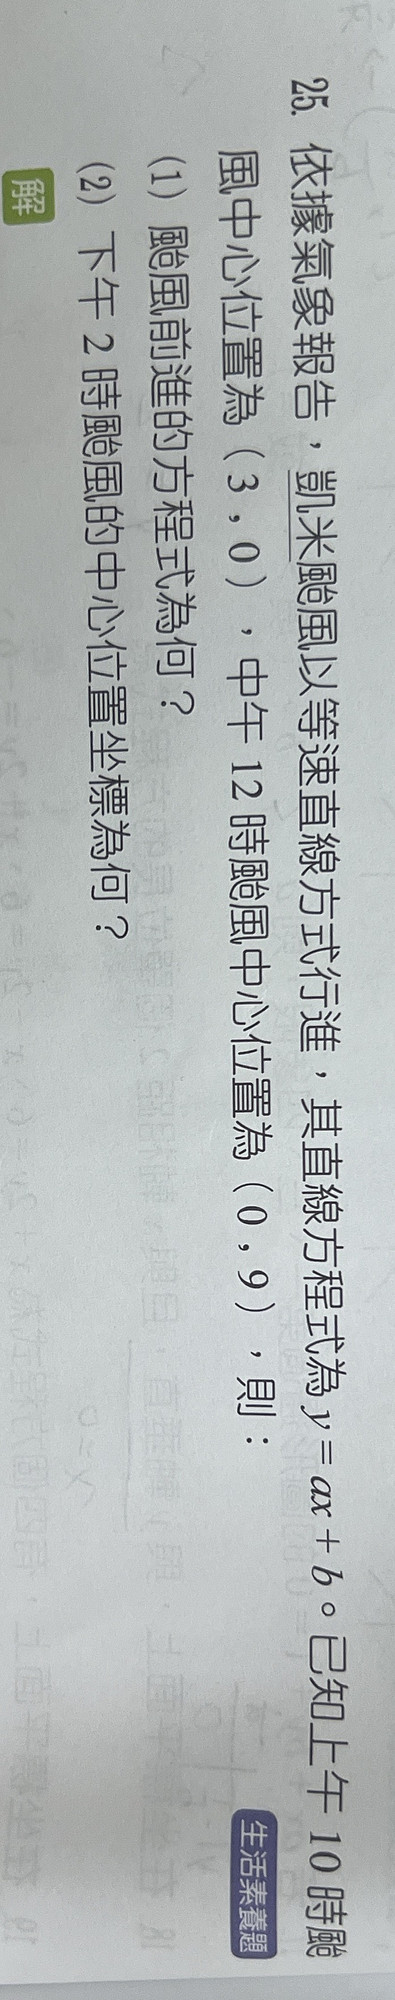 25. 依據氣象報告，凱米颱風以等速直線方式行進，其直線方程式為 y = ax + b。已知上午 10 時颱
風中心位置為（3，0），中午 12 時颱風中心位置為（0，9），則：
生活素養題
(1) 颱風前進的方程式為何？
(2) 下午 2 時颱風的中心位置坐標為何？
解